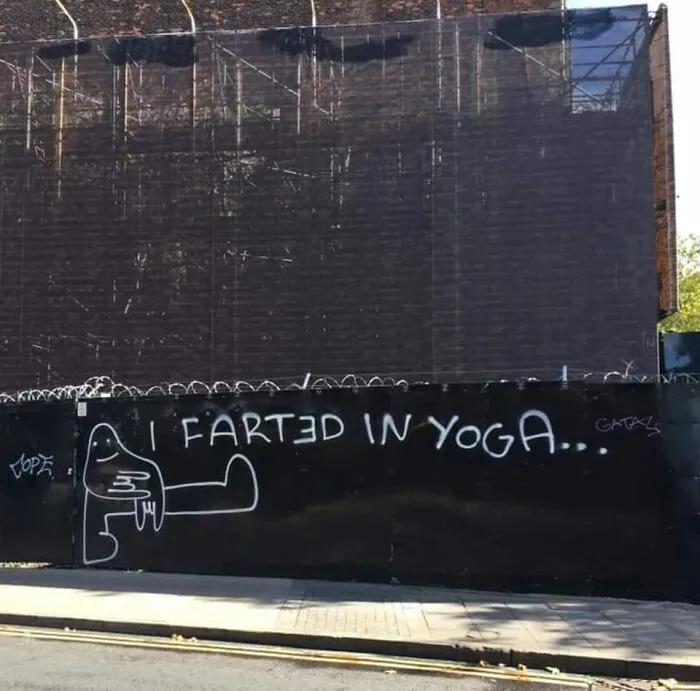 I FARTED IN YOGA...
COPE
GATALS